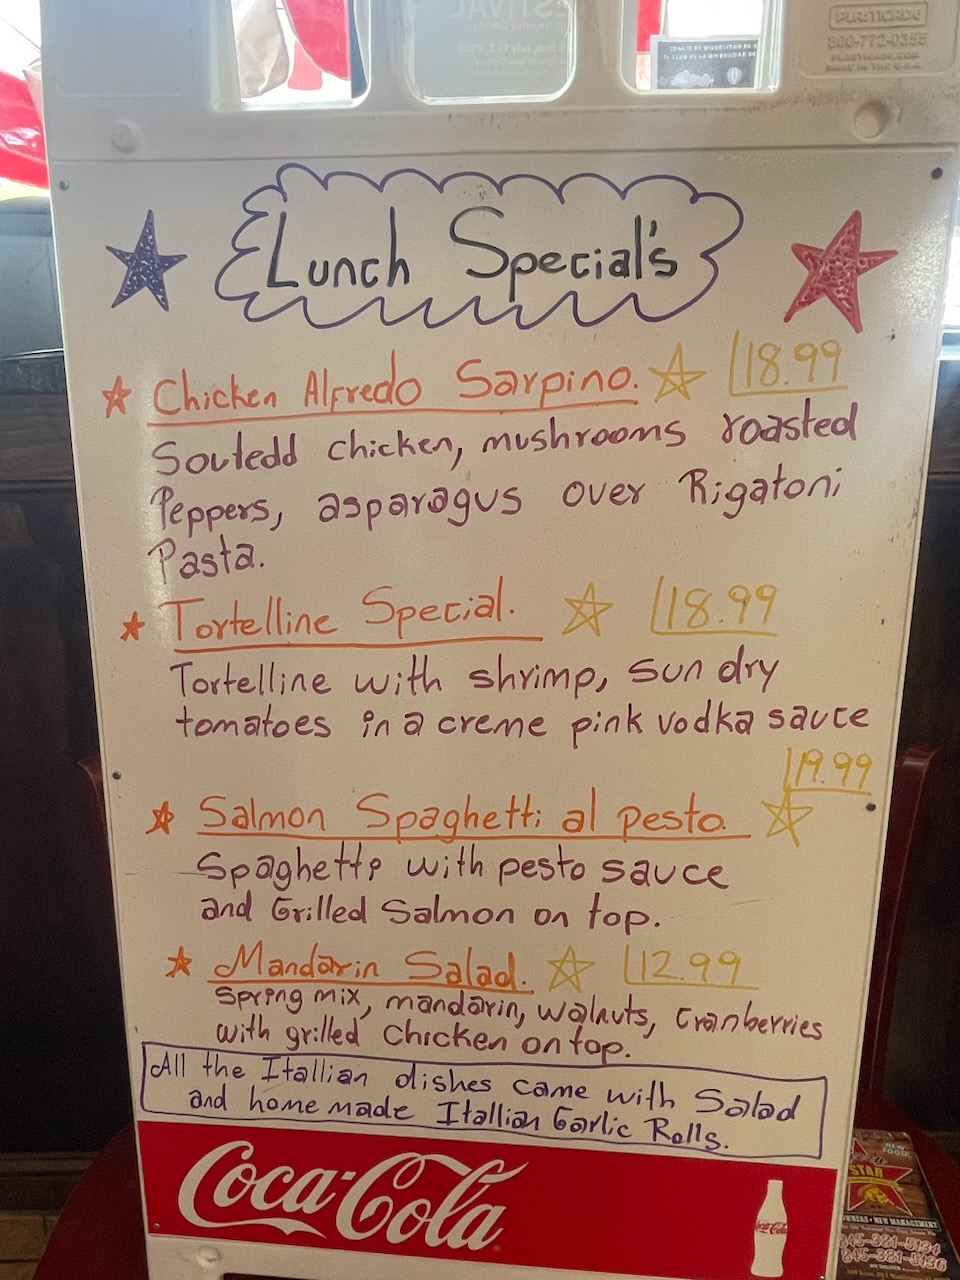 PLASTICADE
800-772-0355
PLASTICADE.COM
MADE IN THE U.S.A.
Lunch Special's
Chicken Alfredo Sarpino. 18.99
Soutedd chicken, mushrooms roasted
Peppers, asparagus over Rigatoni
Pasta.
Tortelline Special. 18.99
Tortelline with shrimp, sun dry
tomatoes in a creme pink vodka sauce
19.99
Salmon Spaghetti al pesto.
Spaghetti with pesto sauce
and Grilled Salmon on top.
Mandarin Salad. 12.99
Spring mix, mandarin, walnuts, Cranberries
with grilled Chicken on top.
All the Itallian dishes came with Salad
and home made Itallian Garlic Rolls.
Coca-Cola
NEW
FOOD
STAR
OWNERS • NEW MANAGEMENT
845-381-5134
845-381-5136